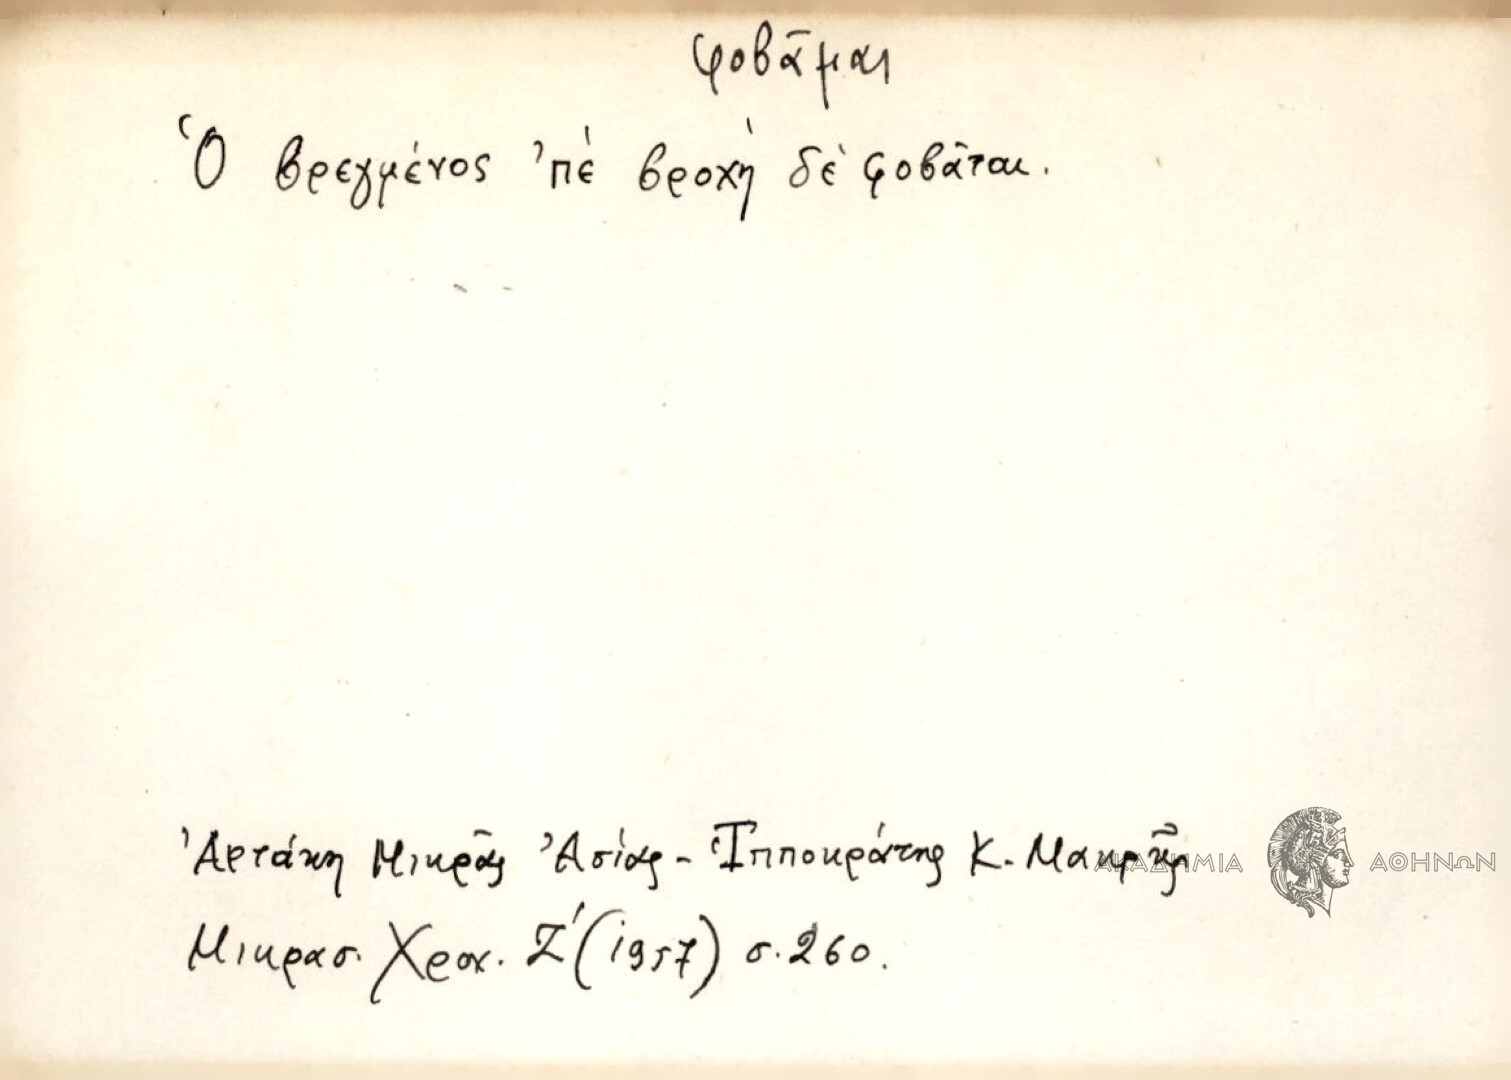 φοβᾶμαι
Ὁ βρεγμένος ἀπὲ βροχὴ δὲ φοβᾶται.
Ἀρτάκη Μικρᾶς Ἀσίας - Ἱπποκράτης Κ. Μακρῆς
ΑΚΑΔΗΜΙΑ ΑΘΗΝΩΝ
Μικρασ. Χρον. Ζ΄ (1957) σ. 260.